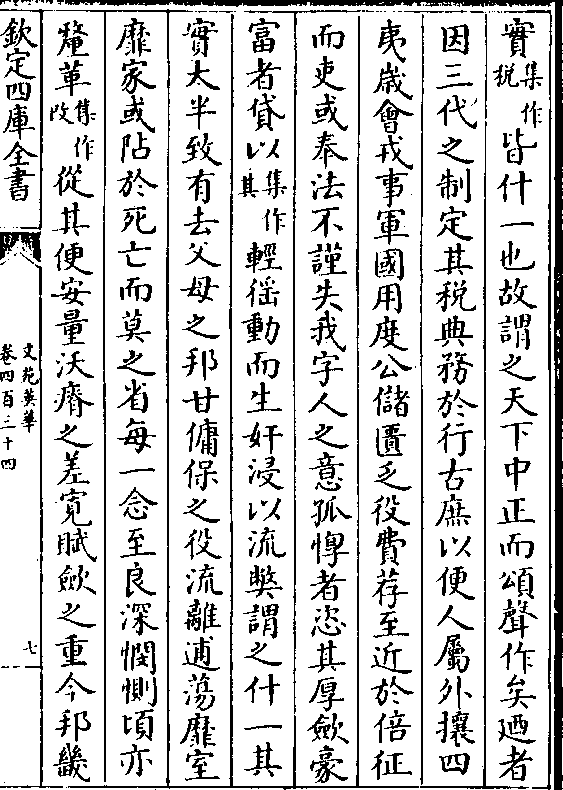 實集作税皆什一也故謂之天下中正而頌聲作矣廼者
因三代之制定其税典務於行古庶以便人屬外攘四
夷歲會戎事軍國用度公儲匱乏役費荐至近於倍征
而吏或奉法不謹失我字人之意孤惸者恣其厚斂豪
富者貸以集作其輕徭動而生奸浸以流弊謂之什一其
實太半致有去父母之邦甘傭保之役流離逋蕩靡室
靡家或阽於死亡而莫之省每一念至良深憫惻頃亦
釐革集作改從其便安量沃瘠之差寛賦斂之重今邦畿
欽定四庫全書
文苑英華
卷四百三十四
七